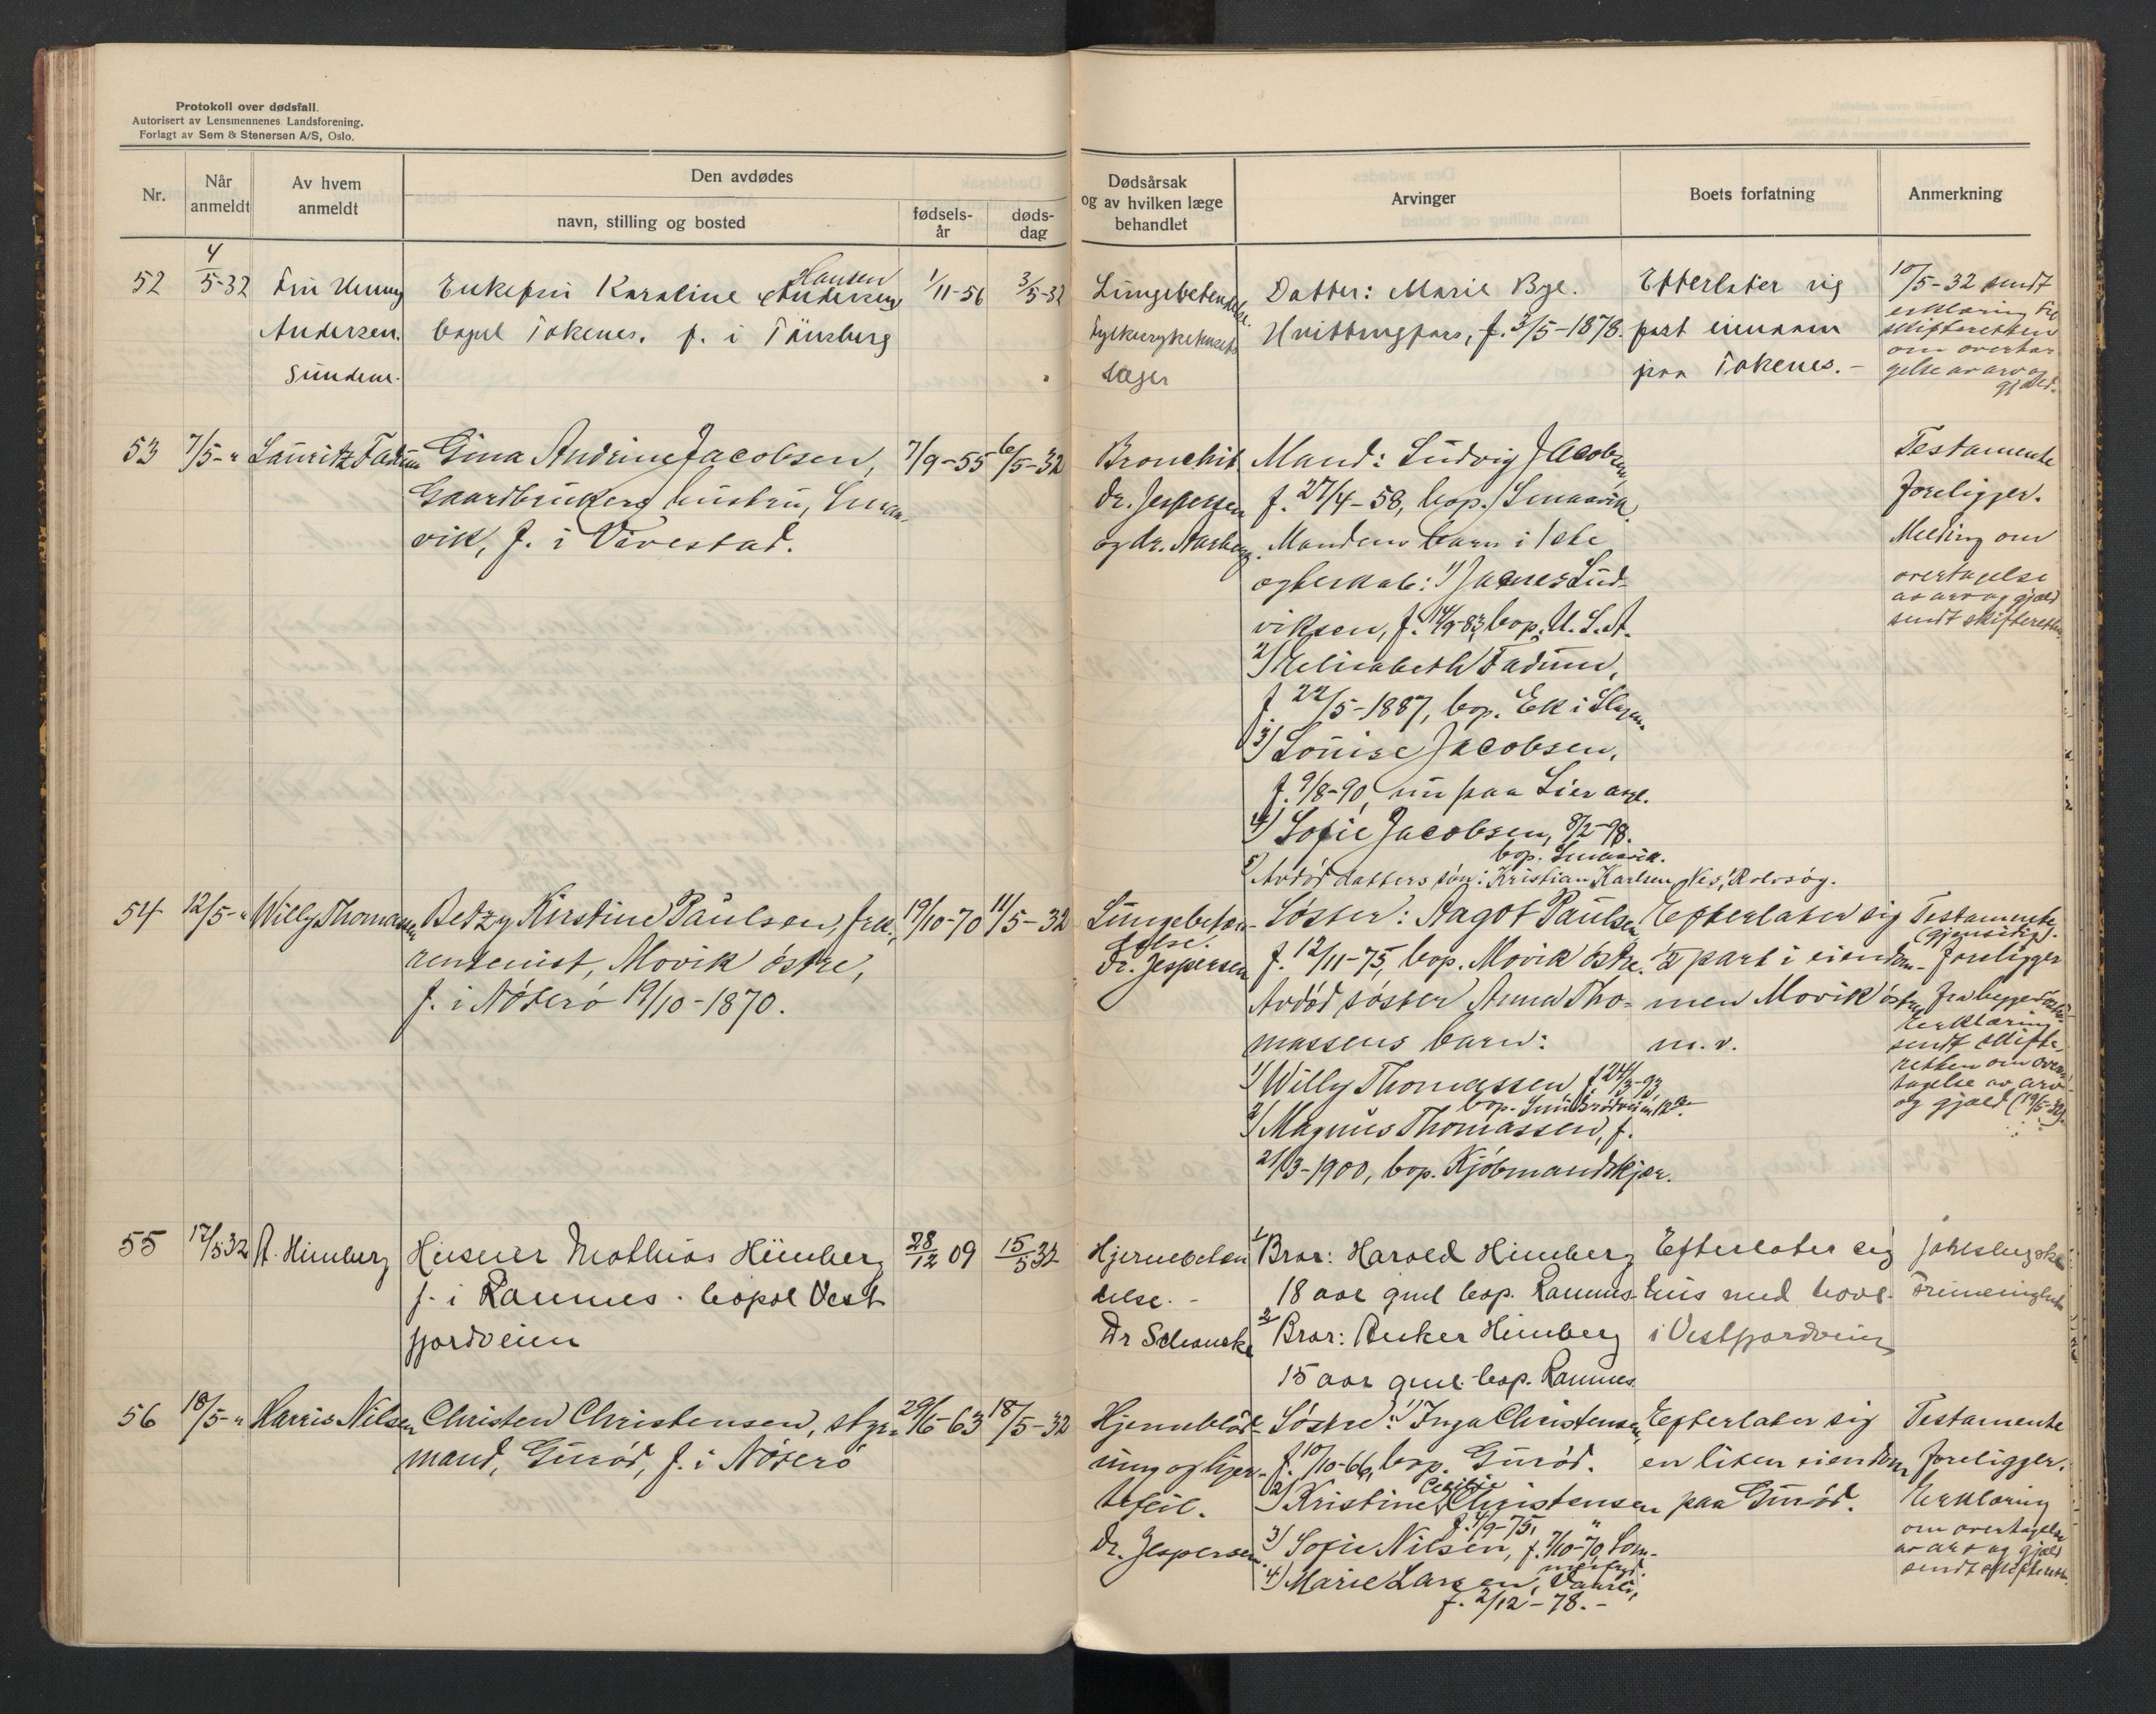 Protokoll over dødsfall.
Autorisert av Lensmennenes Landsforening.
Forlagt av Sem & Stenersen A/S, Oslo.
Nr.
Når anmeldt
Av hvem anmeldt
Den avdødes
navn, stilling og bosted
fødsels-år
døds-dag
Dødsårsak og av hvilken læge behandlet
Arvinger
Boets forfatning
Anmerkning
52
4/5-32
Fru Henny
Andersen.
Sundene.
Enkefru Karoline Andersen Hansen
bopæl Tokenes. f. i Tönsberg
1/11-56
3/5-32
Lungebetendelse.
Fylkessykehusets
læger
Datter: Marie Bye.
f. 3/5-1878.
Efterlater sig
part i eiendom
paa Tokenes.-
10/5-32 sendt
erklæring til
skifteretten
om overtar
gelse av arv og
gjæld.
53
7/5-"
Lauritz Fadum
Gina Andrine Jacobsen,
Gaardbrukers hustru, Smaa-
vik, f. i Vivestad.
7/9-55
6/5-32
Bronchit
Dr. Jespersen
og dr. Aarberg.
Mand: Ludvig Jacobsen
f. 27/4-58, bop. Smaavik.
Mandens barn i 1ste
egteskab: 1) Jacques Lud-
viksen, f. 14/9-83, bop. U.S.A.
2) Helisabeth Fadum,
f. 22/5-1887, bop. Ek i Slagen.
3) Louise Jacobsen,
f. 9/8-90, nu paa Lier asyl.
4) Sofie Jacobsen, 8/2-98.
bop. Smaavik.
5) Avdød datters søn: Kristian Karlsen, Nes, Rolvsøy.
Testamente
foreligger.
Melding om
overtagelse
av arv og gjæld
sendt skifteretten.
54
12/5-"
Willy Thomassen
Betzy Kirstine Paulsen, frk.,
rentenist, Movik østre,
f. i Nøterø 19/10-1870.
19/10-70
11/5-32
Lungebeten-
delse.
Dr. Jespersen
Søster: Aagot Paulsen
f. 12/11-75, bop. Movik østre.
Avdød søster Anna Tho-
massens barn:
1) Willy Thomassen f. 24/3-93
2) Magnus Thomassen, f.
21/3-1900, bop. Kjøbmandskjær.
Efterlater sig
1/2 part i eiendom-
men Movik østre
m.v.
Testamente
(gjensidig).
foreligger
fra begge søstre.
Erklæring
sendt skifte-
retten om over-
tagelse av arv
og gjæld (19/5-32).
55
17/5 32
A. Himberg
Husmr Mathias Himberg
f. i Ramnes. bopæl Vest
fjordveien
28/12 09
15/5 32
Hjernebeten
delse. -
Dr Schanske
1/ Bror: Harald Himberg
18 aar gml bop. Ramnes
2/ Bror: Anker Himberg
15 aar gml. bop. Ramnes.
Efterlater sig
hus med have
i Vestfjordveien
56
18/5-"
Harris Nilsen
Christen Christensen, styr-
mand, Gurød, f. i Nøterø
29/6-63
18/5-32
Hjerneblød-
ning og hjer-
tefeil.
Dr. Jespersen.
Søstre: 1) Inga Christensen,
f. 10/10-66, bop. Gurød.
2) Kristine Cecilie Christensen
f. 4/9-75, "
3) Sofie Nilsen, f. 7/10-70,
4) Marie Larsen,
f. 2/12-78.-
Efterlater sig
en liten eiendom
paa Gurød.
Testamente
foreligger.
Erklæring
om overtagelse
av arv og gjæld
sendt skifteretten.